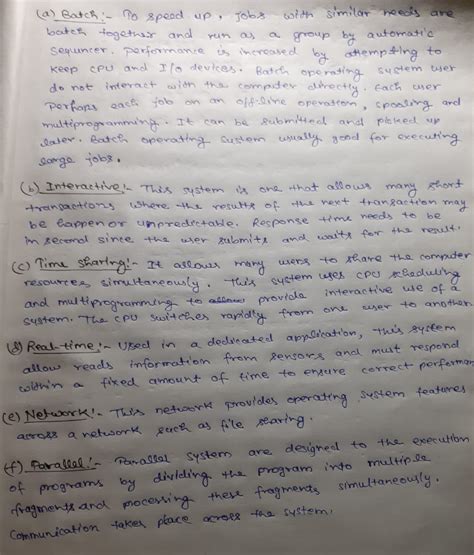 (a) Batch:- To speed up, jobs with similar needs are
batch together and run as a group by automatic
sequncer. performance is increased by attempting to
keep CPU and I/o devices. Batch operating system user
do not interact with the computer directly. Each user
Perhaps each job on an off-line operation, spooling and
multiprogramming. It can be submitted and picked up
later. Batch operating system usually good for executing
large jobs.
(b) Interactive:- This system is one that allows many short
transactions where the results of the next transaction may
be happen or unpredictable. Response time needs to be
in second since the user submits and waits for the result.
(c) Time sharing:- It allows many users to share the computer
resources simultaneously. This system uses CPU scheduling
and multiprogramming to provide interactive use of a
system. The CPU switches rapidly from one user to another
(d) Real-time:- Used in a dedicated application, this system
allow reads information from sensors and must respond
within a fixed amount of time to ensure correct performan
(e) Network:- This network provides operating system features
across a network such as file sharing.
(f) Parallel:- Parallel system are designed to the execution
of programs by dividing the program into multiple
fragments and processing these fragments simultaneously.
Communication takes place across the system.